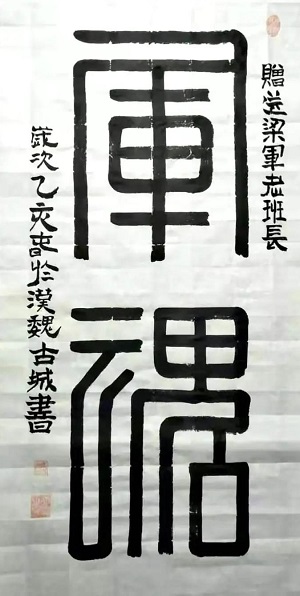 贈送梁軍老班長
軍魂
歲次乙亥春於漢魏古城書